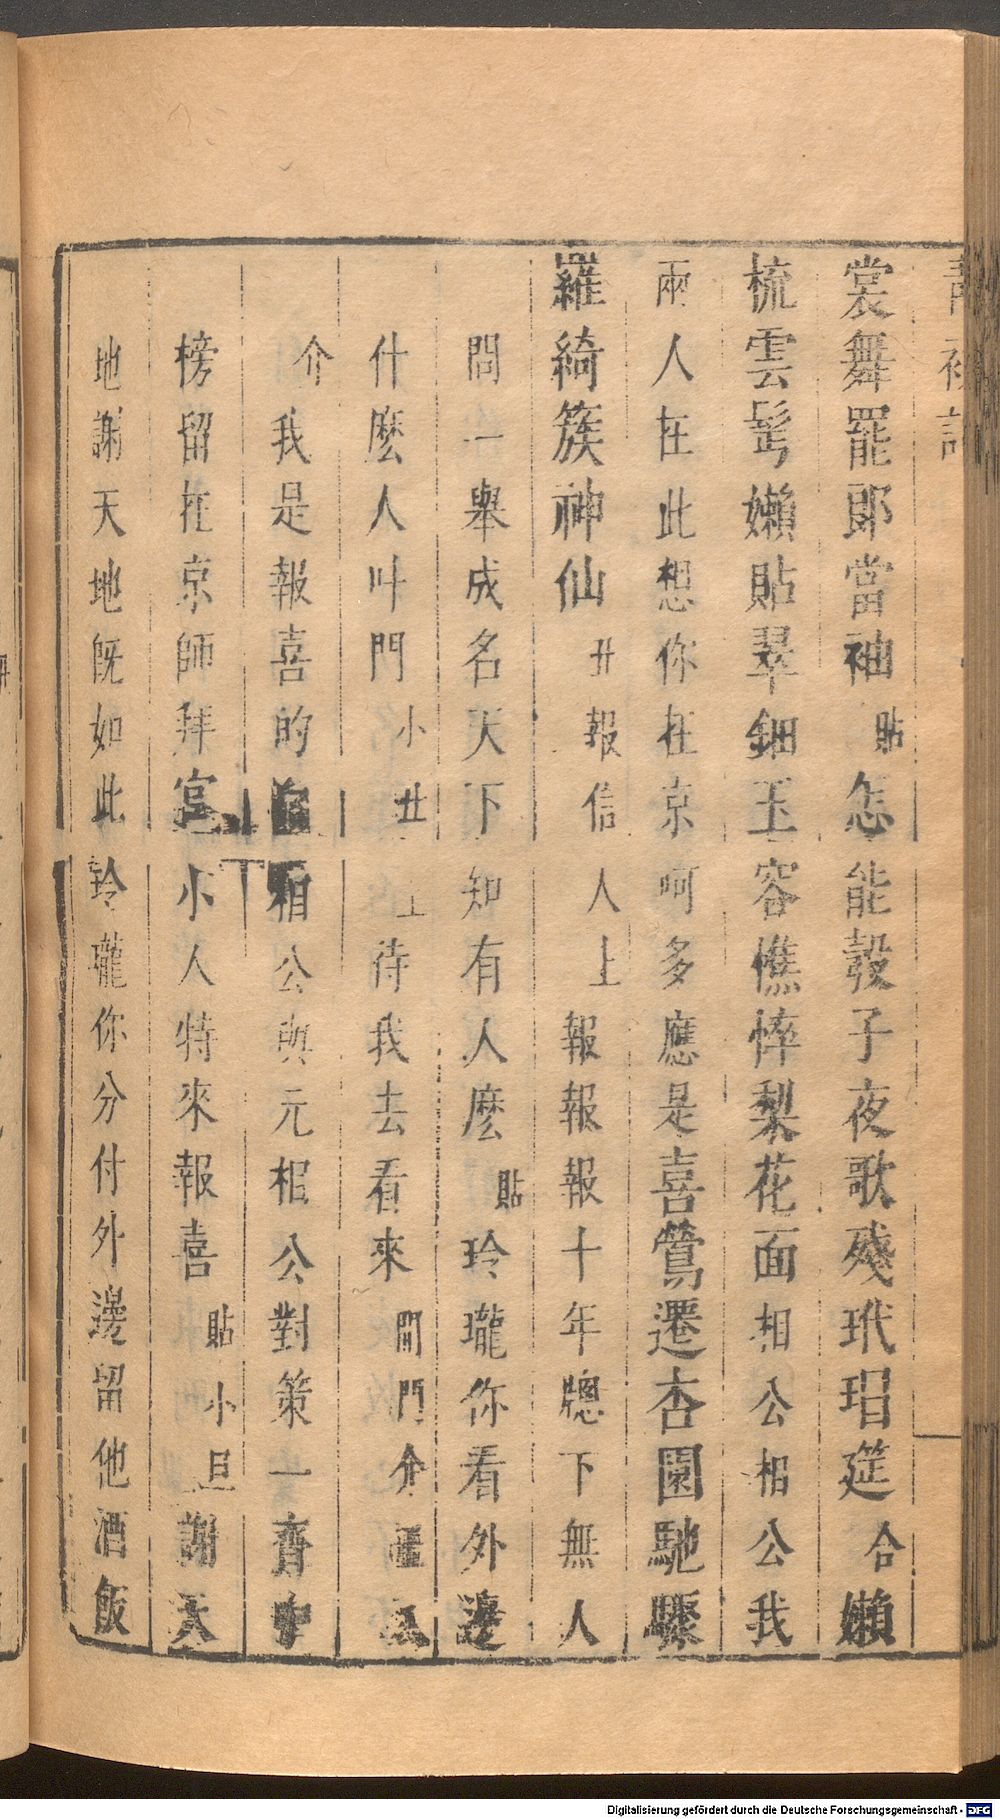 青衫記
裳舞罷郎當袖 貼 怎能彀子夜歌殘玳瑁筵 合 嬾
梳雲髩嬾貼翠鈿玉容憔悴梨花面相公相公我
兩人在此想你在京呵多應是喜鶯遷杏園馳驟
羅綺簇神仙 丑 報信人上 報報報十年牕下無人
問一舉成名天下知有人麽 貼 玲瓏你看外邊
什麽人叫門 小丑上 待我去看來 開門介
介 我是報喜的 相公與元相公對策一齊中
榜留在京師拜官小人特來報喜 貼小旦 謝天
地謝天地旣如此玲瓏你分付外邊留他酒飯
Digitalisierung gefördert durch die Deutsche Forschungsgemeinschaft - DFG